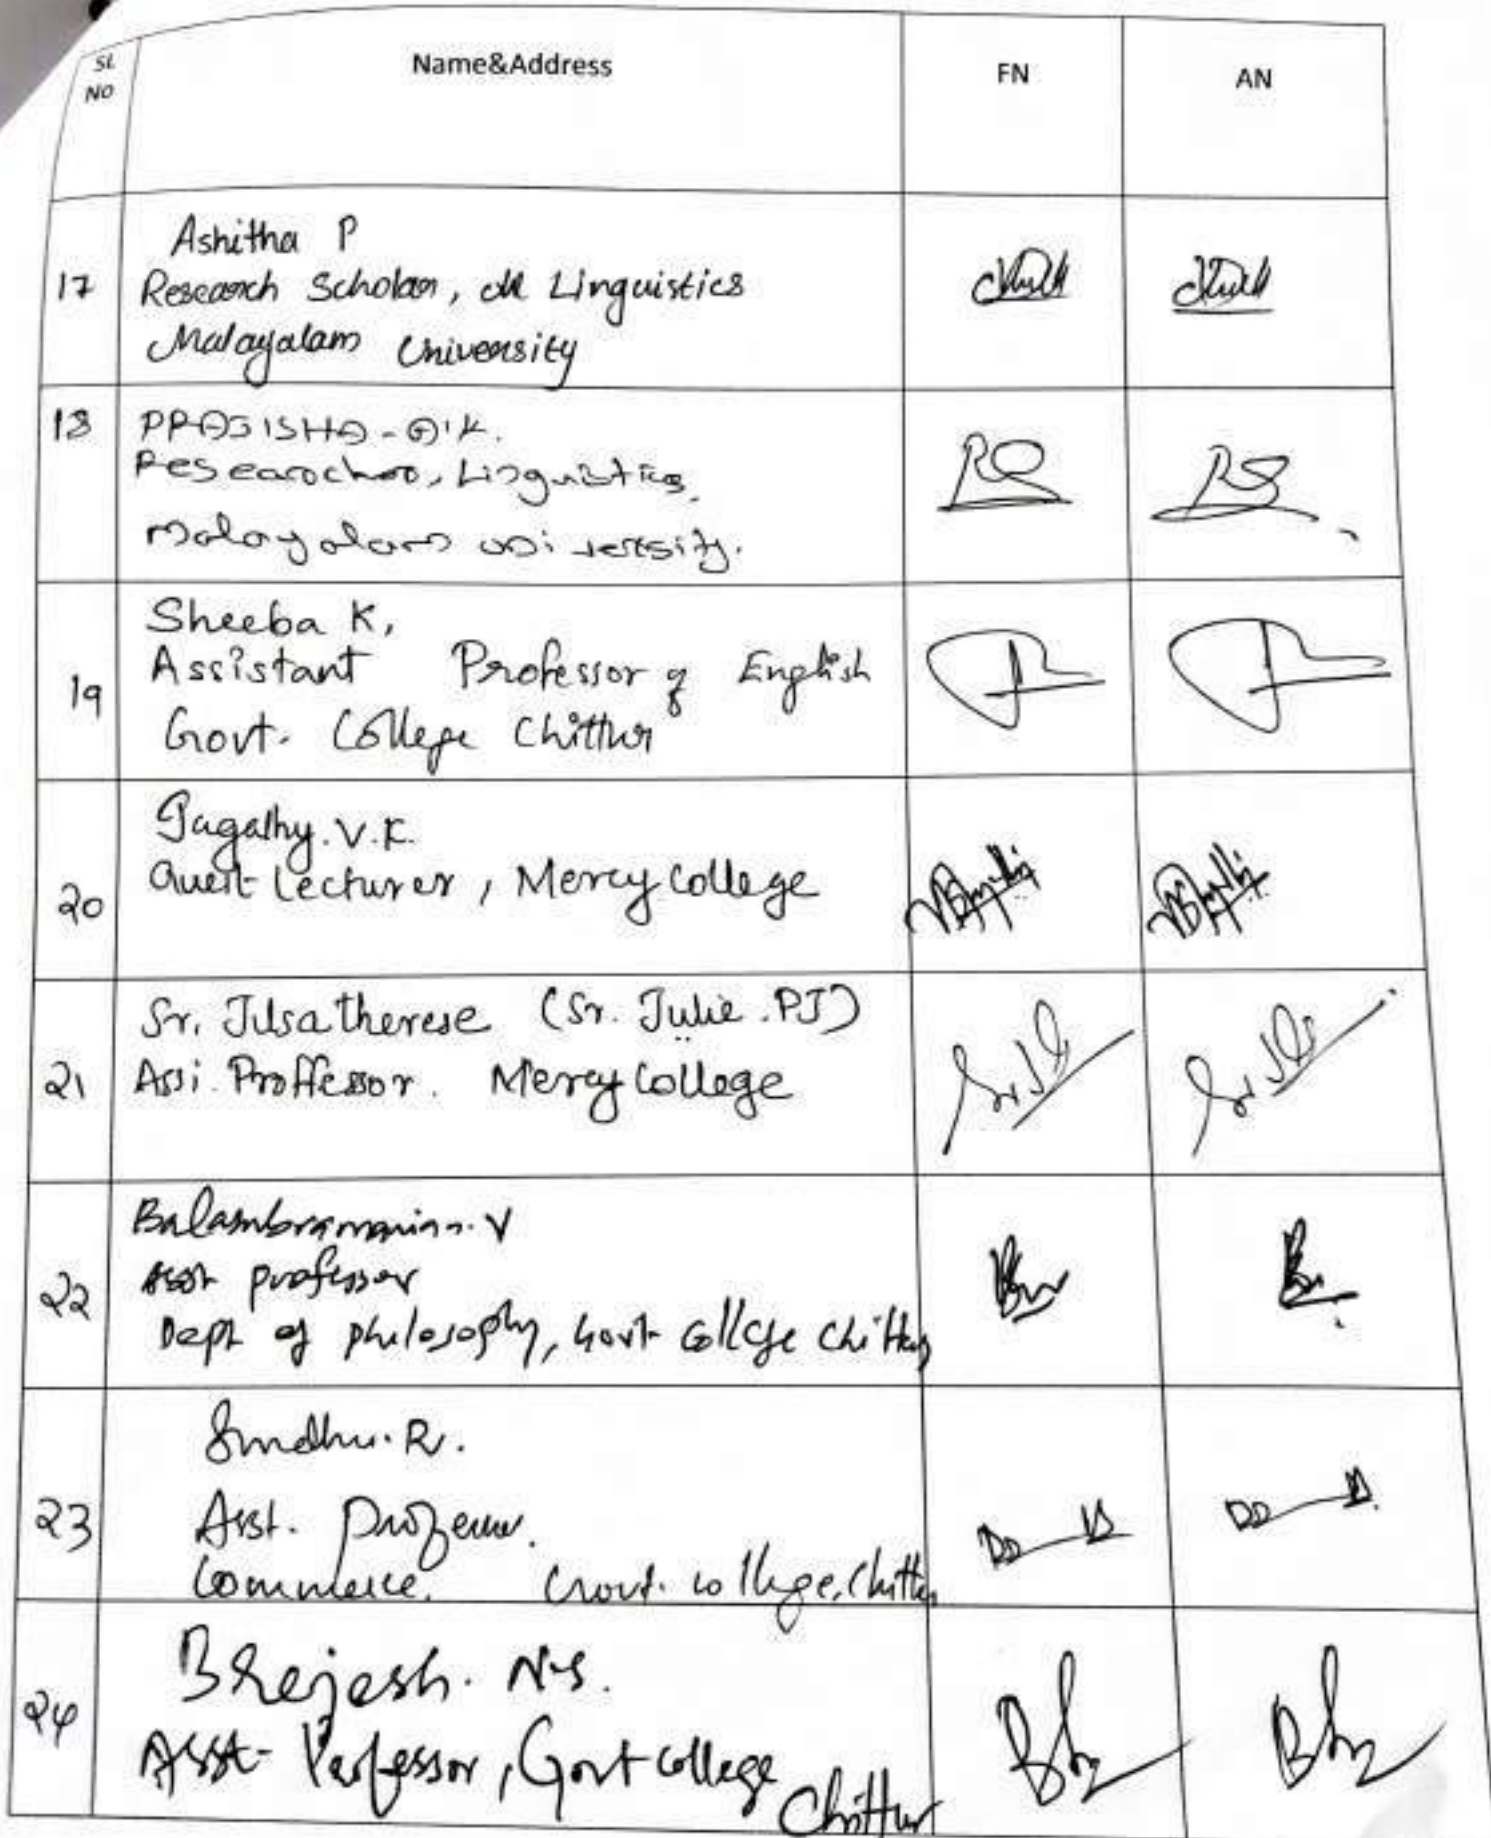 SL
NO
Name&Address
FN
AN
17
Ashitha P
Research Scholar, Linguistics
Malayalam University
18
PRAJISHA - K.
Researcher, Linguistics,
Malayalam university.
19
Sheeba K,
Assistant Professor of English
Govt. College Chittur
20
Jagathy. V.K.
Guest Lecturer, Mercy College
21
Sr. Jilsa therese (Sr. Julie. PJ)
Assi. Proffessor. Mercy College
22
V
Asst professor
Dept of philosophy, Govt College Chittur
23
Sindhu. R.
Asst. Professor.
Commerce. Govt. College, Chittur
24
Brejesh. N.S.
Asst- Professor, Govt college
Chittur